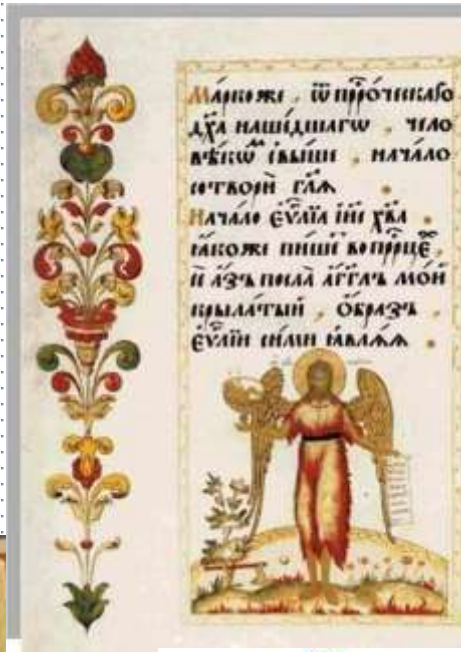 Ма́ркоже , ѿ прⷪ҇ро́ческаго
дх҃а наше́дшагѡ , чело
вѣ́кѡⷨ свы́ше , нача́ло
сотворѝ гл҃ѧ
Нача́ло є҆ѵⷢ҇лїа і҆и҃с хв҃а
ꙗ҆́коже пи́шеⷮ во прⷪ҇рцѣⷯ
се а҆́зъ посла̀ а҆́гг҃лъ мо́й
крыла́тый , ѻ҆́бразъ
є҆ѵⷢ҇лїи си́ми ꙗ҆влѧ́ѧ